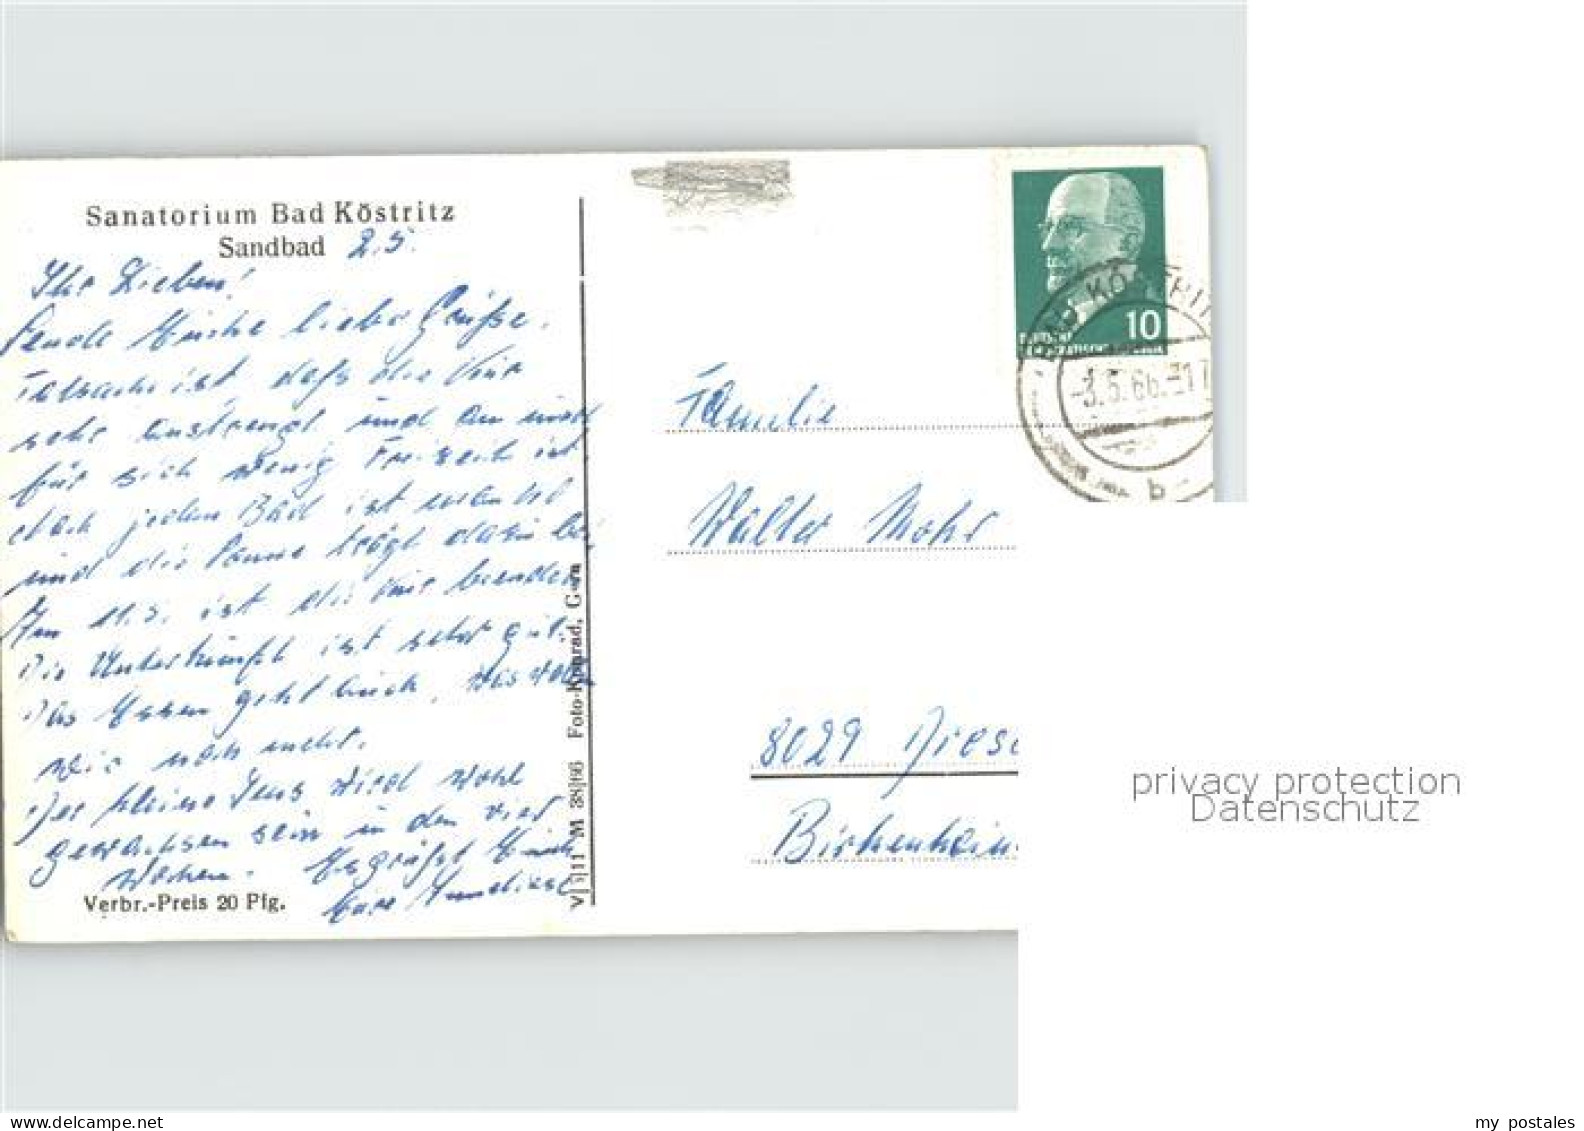 Sanatorium Bad Köstritz
Sandbad
2.5.
Ihr Lieben!
Sende Euche liebe Grüße.
Tatsache ist, daß die Kur
sehr anstrengt und
für sich wenig Freizeit ist
jeden Bad ist man
und die Sonne trägt dazu bei.
Am 11.5. ist die Kur beendet
Die Unterkunft ist sehr gut.
Das Essen geht auch, was woll
wir noch mehr.
Der kleine Jens wird wohl
gewachsen sein in den vier
Wochen. Es grüßt Euch
Eure Anneliese
Verbr.-Preis 20 Pfg.
V/11/11 M 38/66 Foto-Konrad, Gera
10
DEUTSCHE
DEMOKRATISCHE
BAD KÖSTRITZ
-3.5.66.-17
b
Familie
Walter Mohr
8029 Dresd
Birkenhein
privacy protection
Datenschutz
www.delcampe.net
my postales